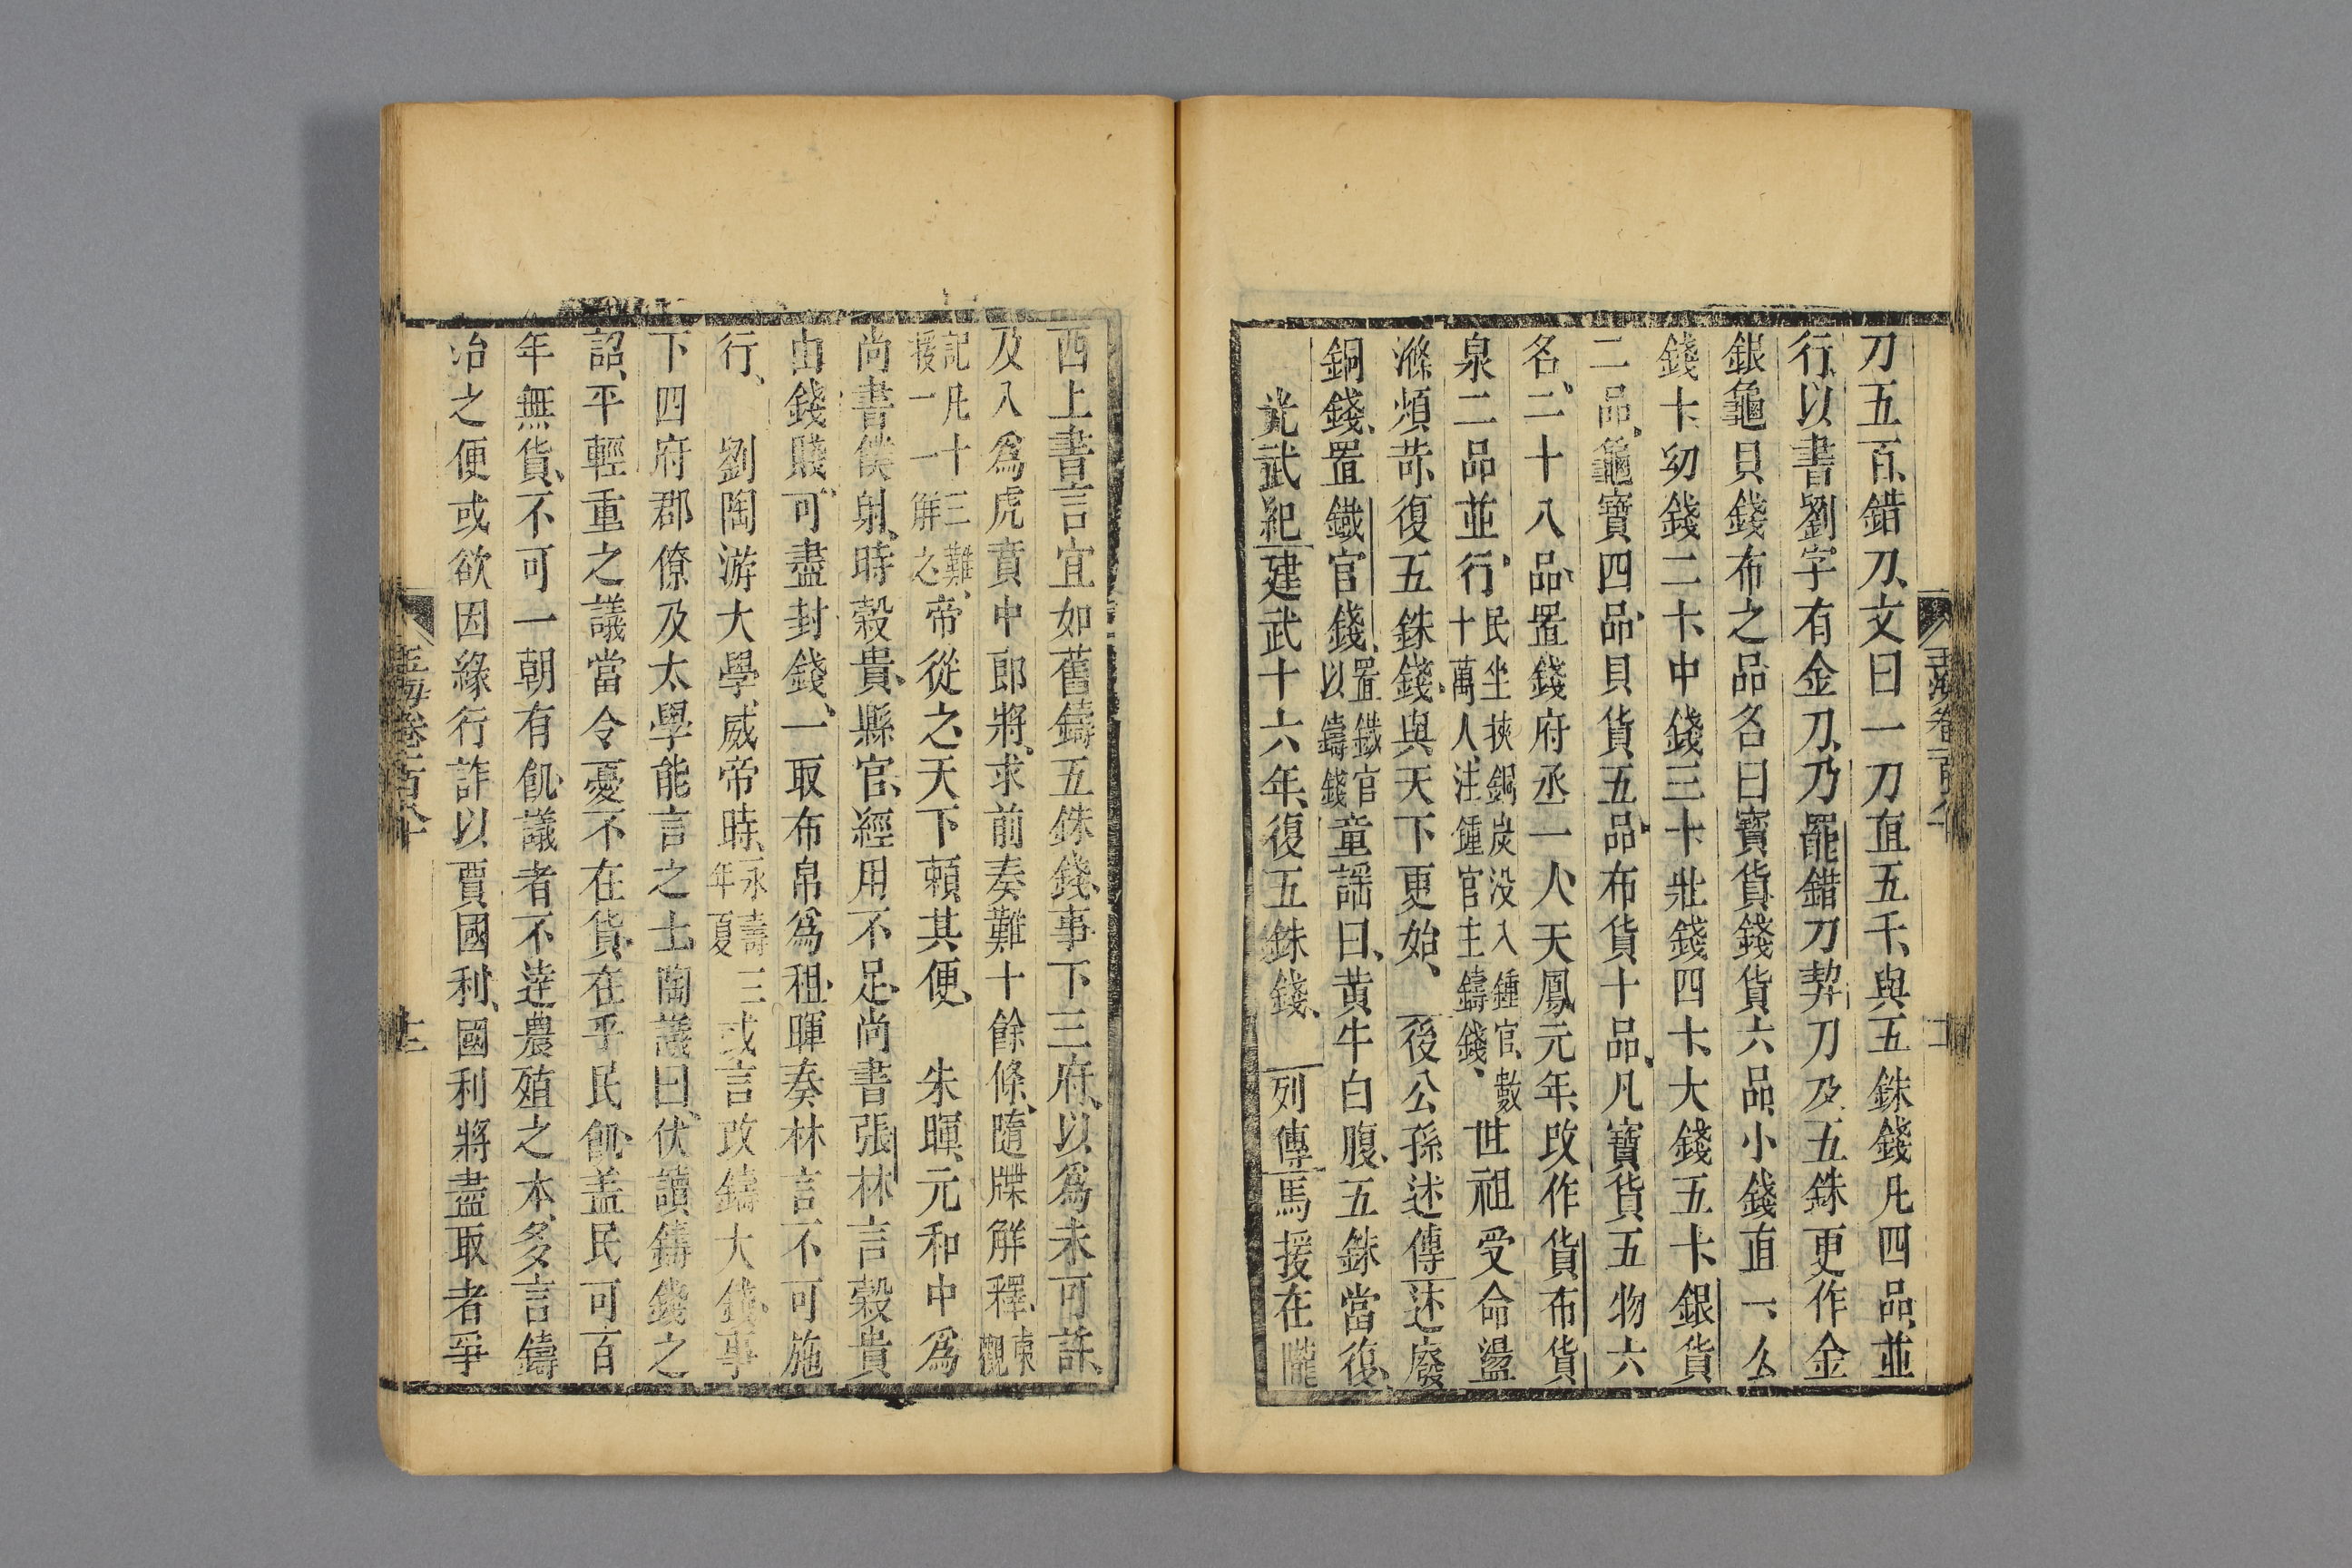 刀五百、錯刀、文曰一刀直五千、與五銖錢凡四品、並
行、以書劉字有金刀、乃罷錯刀契刀及五銖更作金
銀龜貝錢布之品名曰寶貨、錢貨六品、小錢直一、幺
錢十、幼錢二十、中錢三十、壯錢四十、大錢五十、銀貨
二品、龜寶四品、貝貨五品、布貨十品、凡寶貨五物六
名、二十八品、置錢府丞一人、天鳳元年、改作貨布貨
泉二品並行、民坐挾銅炭没入鍾官、數十萬人、注鍾官主鑄錢、世祖受命盪
滌煩苛、復五銖錢、與天下更始、後公孫述傳述廢
銅錢、置鐵官錢、置鐵官以鑄錢童謡曰、黄牛白腹、五銖當復、
光武紀建武十六年、復五銖錢、列傳馬援在隴
西上書言宜如舊鑄五銖錢、事下三府、以爲未可許、
及入爲虎賁中郎將、求前奏難十餘條、隨牒解釋、東觀
記凡十三難、援一一解之、帝從之、天下頼其便、朱暉、元和中爲
尚書僕射、時榖貴、縣官經用不足、尚書張林言榖貴
由錢賤、可盡封錢、一取布帛爲租、暉奏林言不可施
行、劉陶游大學、威帝時、永壽三年夏或言改鑄大錢、事
下四府郡僚及太學能言之士、陶議曰、伏讀鑄錢之
詔、平輕重之議當令憂不在貨、在乎民飢、盖民可百
年無貨、不可一朝有飢、議者不逹農殖之本、多言鑄
冶之便或欲因緣行詐以賈國利、國利將盡取者爭
玉海卷一百八十
十二